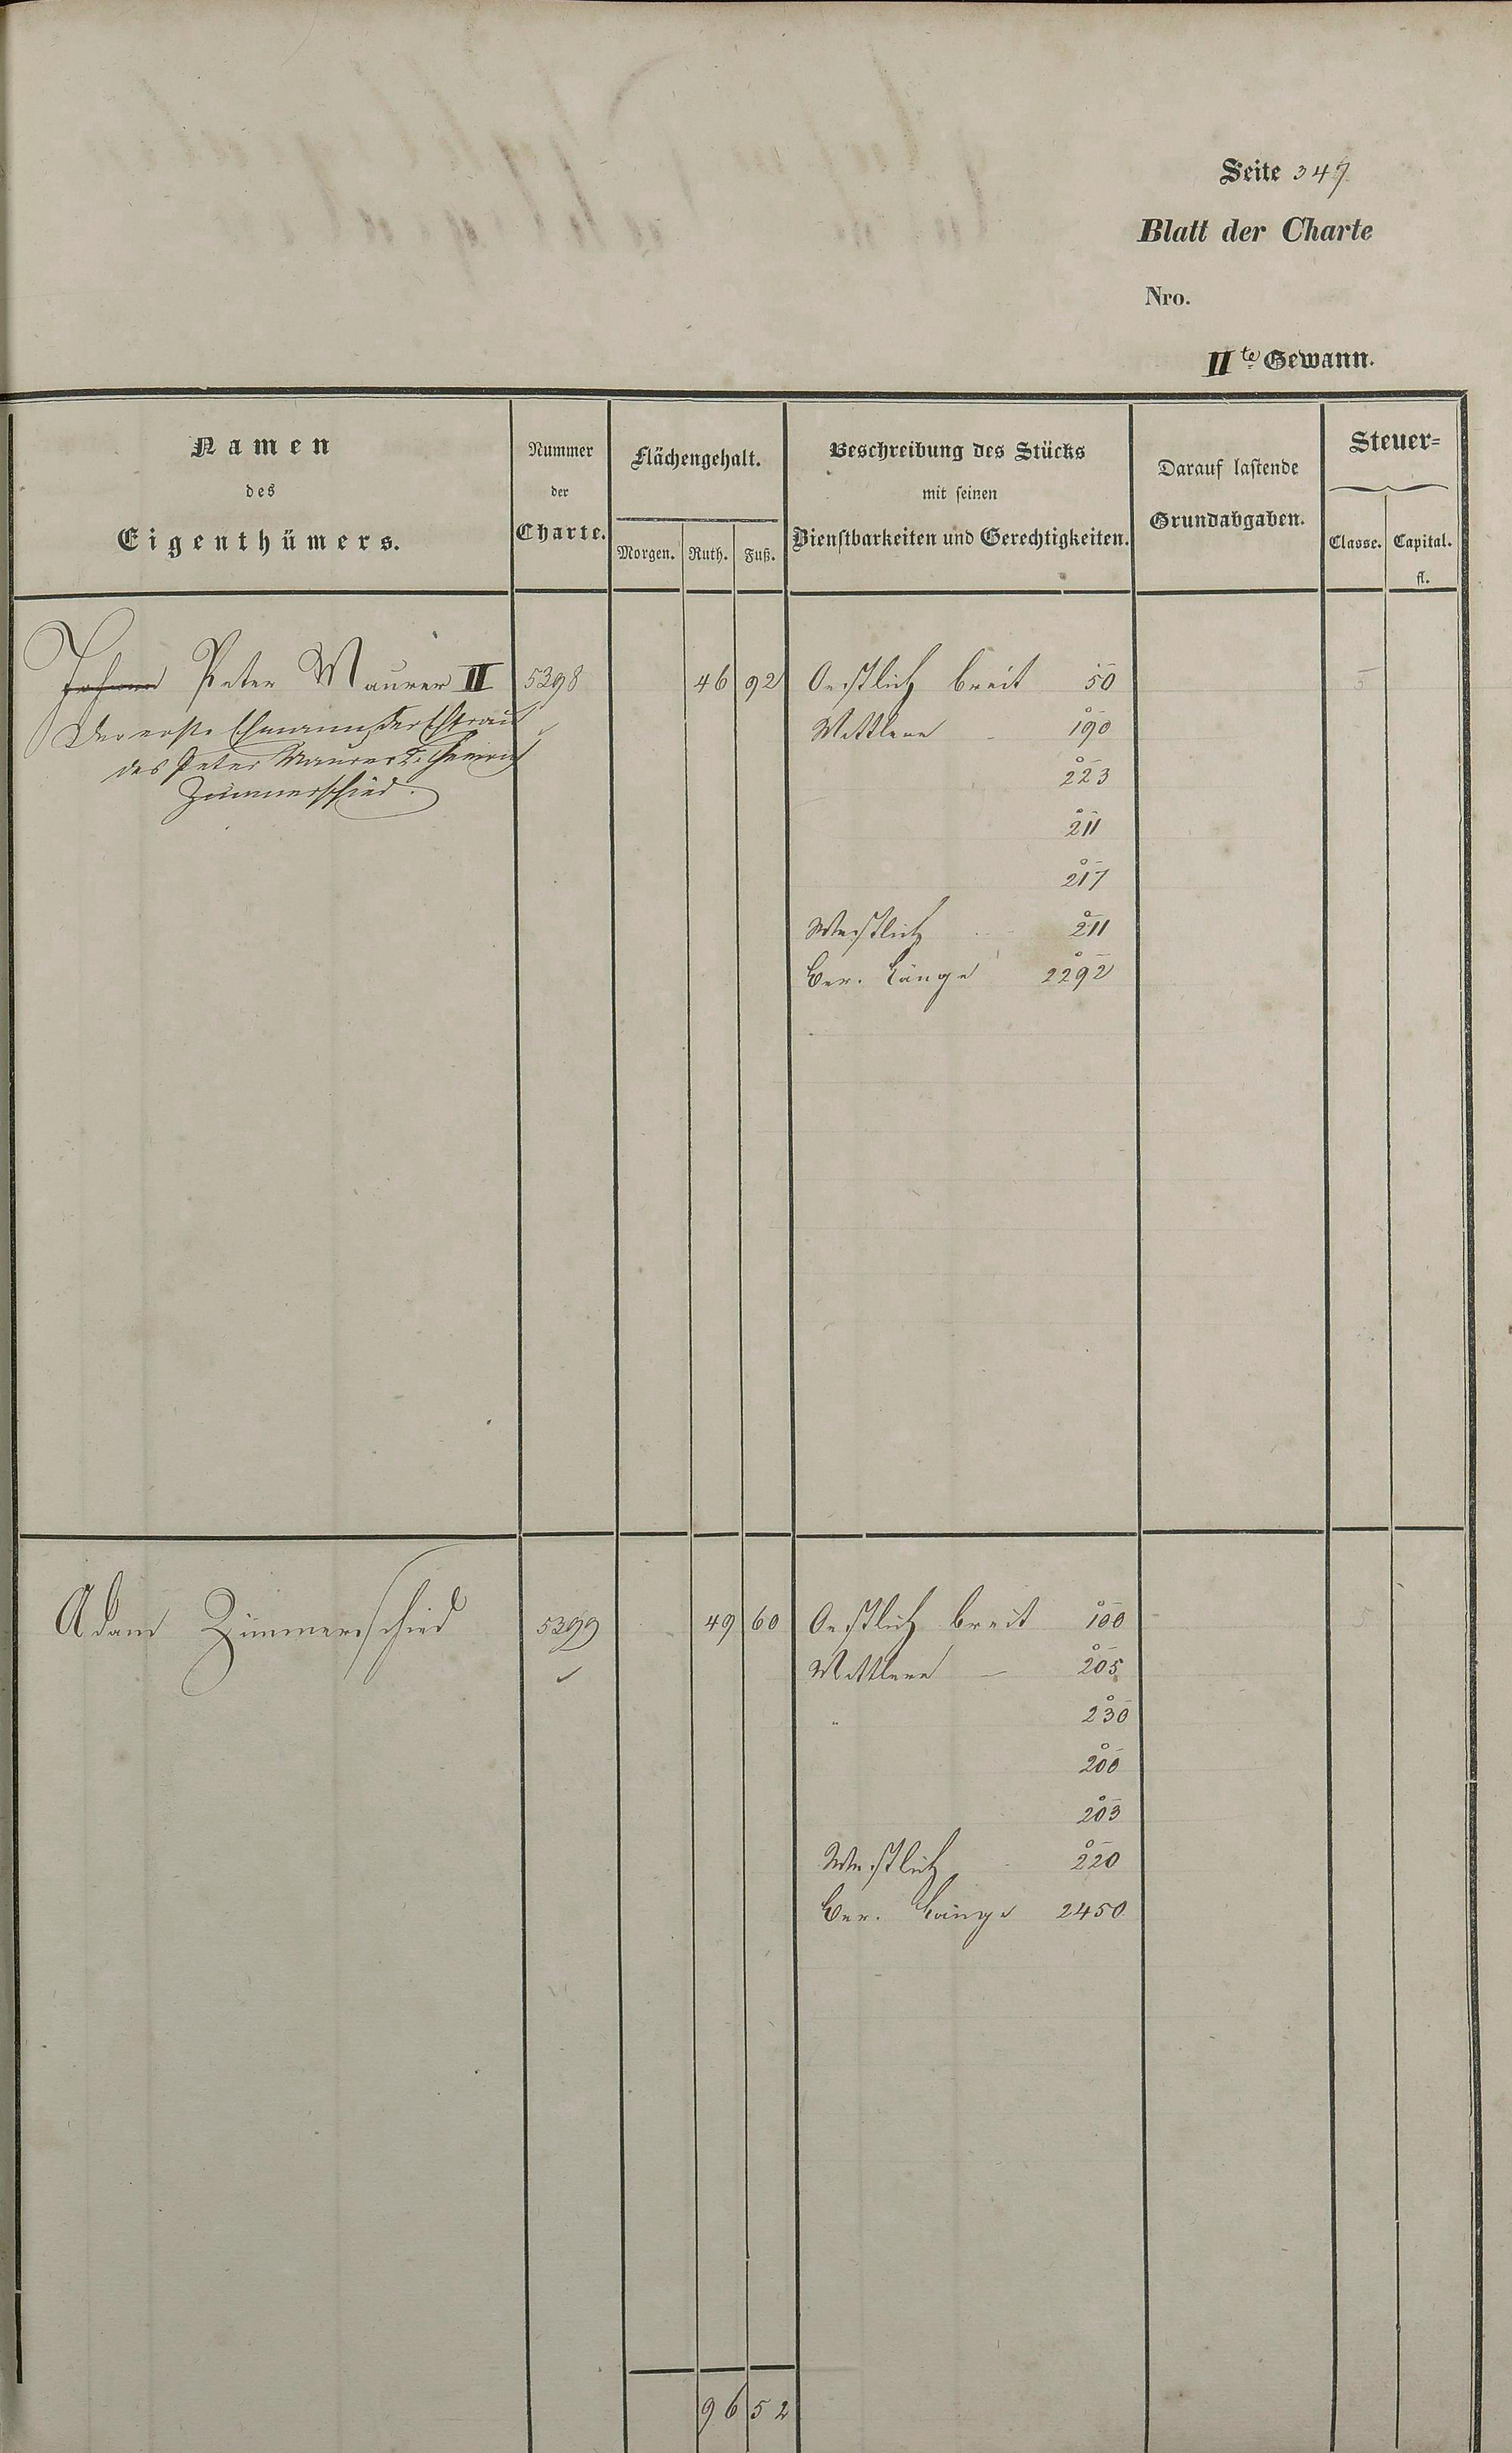 Seite 347
Blatt der Charte
Nro.
II te Gewann.
Namen des Eigenthümers.
Nummer der Charte.
Flächengehalt.
Morgen. Ruth. Fuß.
Beschreibung des Stücks mit seinen Dienstbarkeiten und Gerechtigkeiten.
Darauf lastende Grundabgaben.
Steuer=
Classe. Capital.
fl.
Johann Peter Maurer II 5398 46 92 Oestlich breit 50 5
Der erste Ehmann der Ehfrau Mittlere 190
des Peter Maurer Heinrich 223
Zimmerschied. 211
217
Westlich 211
Ber. Länge 2292
Adam Zimmerschied 5399 49 60 Oestlich breit 100 5
Mittlere — 205
230
200
203
Westlich 220
Ber. Länge 2450
96 52